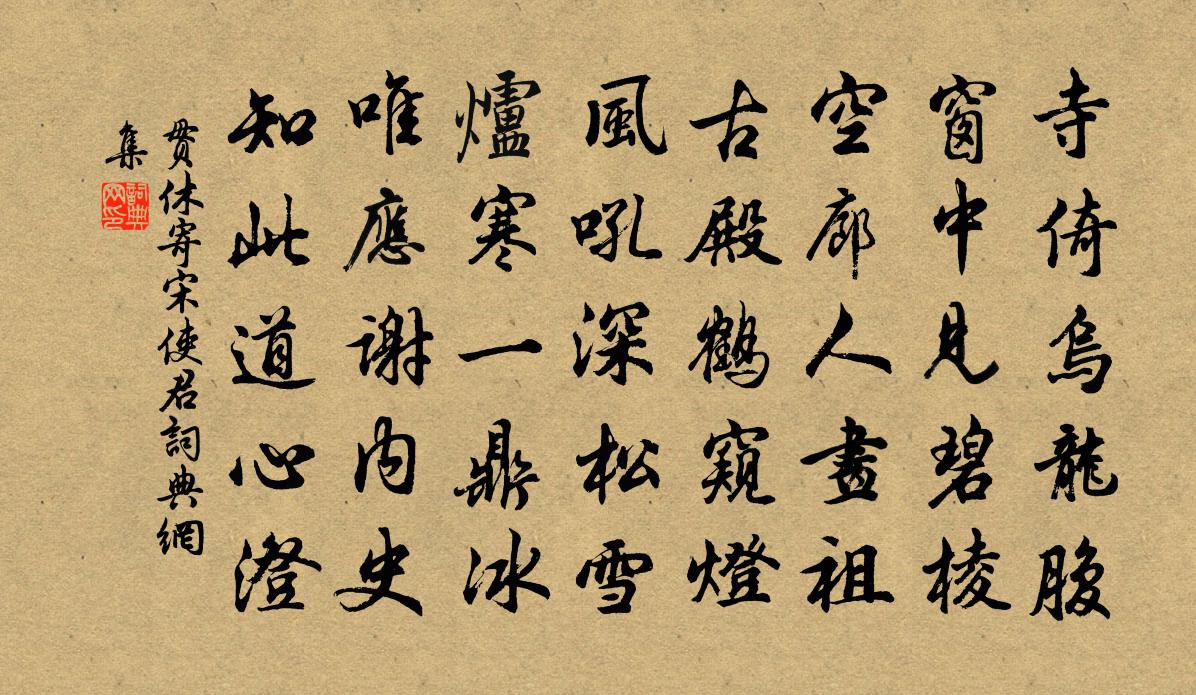 寺倚烏龍腹
窗中見碧棱
空廊人畫祖
古殿鶴窺燈
風吼深松雪
爐寒一鼎冰
唯應謝內史
知此道心澄
貫休寄宋使君詞典網
集
詞典
网印